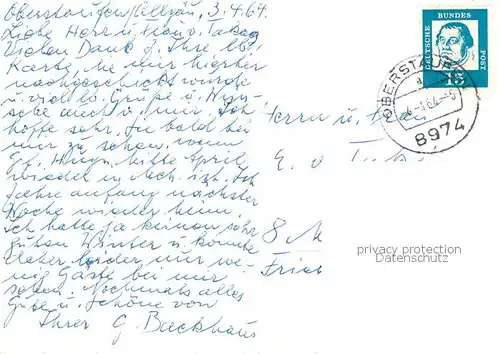 Oberstaufen/Allgäu, 3.4.64
Liebe Herr u. Frau v.
Vielen Dank f. Ihre lb.
Karte, die mir hierher
nachgeschickt wurde
u. viele lb. Grüße u. Wün-
sche auch v. mir. Ich
hoffe sehr, Sie bald bei
mir zu sehen, wenn
Mitte April
wieder in ist. Ich
fahre anfang nächster
Woche wieder heim.
Ich hatte ja keinen sehr
guten Winter u. konnte
daher leider nur we-
nig Gäste bei mir
sehen. Nochmals alles
Gute u. Schöne von
Ihrer G. Backhaus
DEUTSCHE BUNDES POST
15
OBERSTAUFEN
8974
Herrn u. Frau
E. v.
8 M
privacy protection
Datenschutz